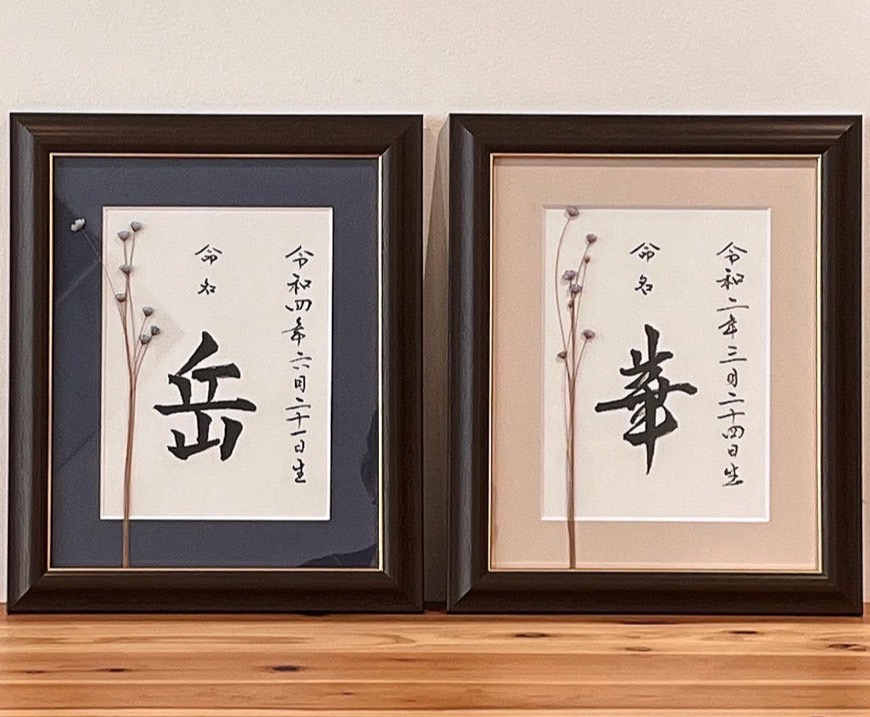 令和四年六月二十一日生
命名
岳
令和二年三月二十四日生
命名
華